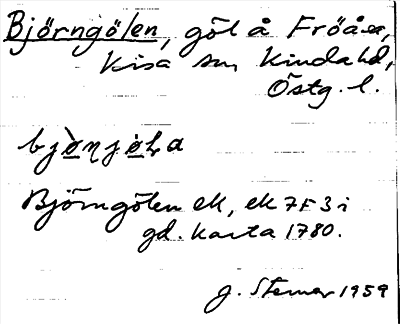 Björngölen, göl å Fröåsa,
Kisa sn, Kinda hd,
Östg. l.
bjònjø̀ɫa
Björngölen ek, ek 7F3i
gd. karta 1780.
J. Sterner 1959